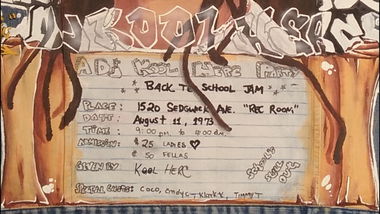 DJ KOOL HERC
A DJ KOOL HERC PARTY
BACK TO SCHOOL JAM
PLACE: 1520 SEDGWICK AVE. "REC ROOM"
DATE: AUGUST 11, 1973
TIME: 9:00 pm. to 4:00 am.
ADMISSION: $.25 LADIES
$.50 FELLAS
GIVEN BY: KOOL HERC
SPECIAL GUESTS: COCO, Cindy C, Klark K, Timmy T